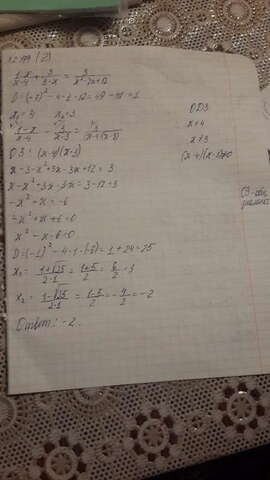 (2)
(1-x)/(x-4) + 3/(3-x) = 3/(x²-7x+12)
D=(-7)²-4·1·12=49-48=1
x₁=4 x₂=3
(1-x)/(x-4) - 3/(x-3) = 3/((x-4)(x-3))
ОЗ: (x-4)(x-3)
x-3-x²+3x-3x+12=3
x-x²+3x-3x=3-12+3
-x²+x=-6
-x²+x+6=0
x²-x-6=0
D=(-1)²-4·1·(-6)=1+24=25
x₁=(1+√25)/(2·1)=(1+5)/2=6/2=3
x₂=(1-√25)/(2·1)=(1-5)/2=-4/2=-2
Ответ: -2.
ОДЗ
x≠4
x≠3
(x-4)(x-3)≠0